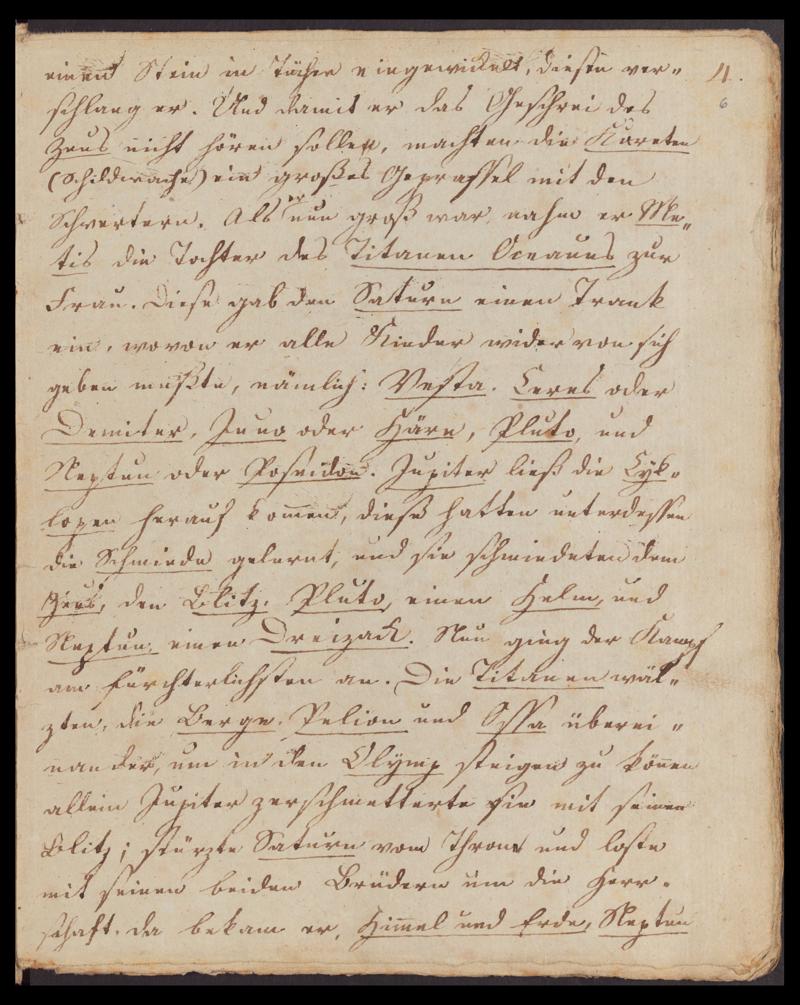 einen Stein in Tücher eingewickelt, diesen ver„ 4.
schlang er. Und damit er das Geschrei des 6
Zeus nicht hören sollte, machten die Kureten
(Schildwache) ein großes Geprassel mit den
Schwertern. Als er nun groß war, nahm er Me„
tis die Tochter des Titanen Oceanus zur
Frau. Diese gab den Saturn einen Trank
ein, wovon er alle Kinder wider von sich
geben mußte, nämlich: Vesta. Ceres oder
Demiter, Juno oder Häre, Pluto, und
Neptun oder Poseidon. Jupiter ließ die Cyk„
lopen herauf kom̄en, diese hatten unterdessen
die Schmiede gelernt, und sie schmiedeten dem
Zeus, den Blitz, Pluto, einen Helm, und
Neptun, einen Dreizack. Nun ging der Kampf
am fürchterlichsten an. Die Titanen wäl„
zten, die Berge, Pelion und Ossa überei„
nander, um in den Olymp steigen zu kön̄en
allein Jupiter zerschmetterte sie mit seinen
Blitz; stürzte Saturn vom Throne und loste
mit seinen beiden Brüdern um die Herr„
schaft. da bekam er, Him̄el und Erde, Neptun